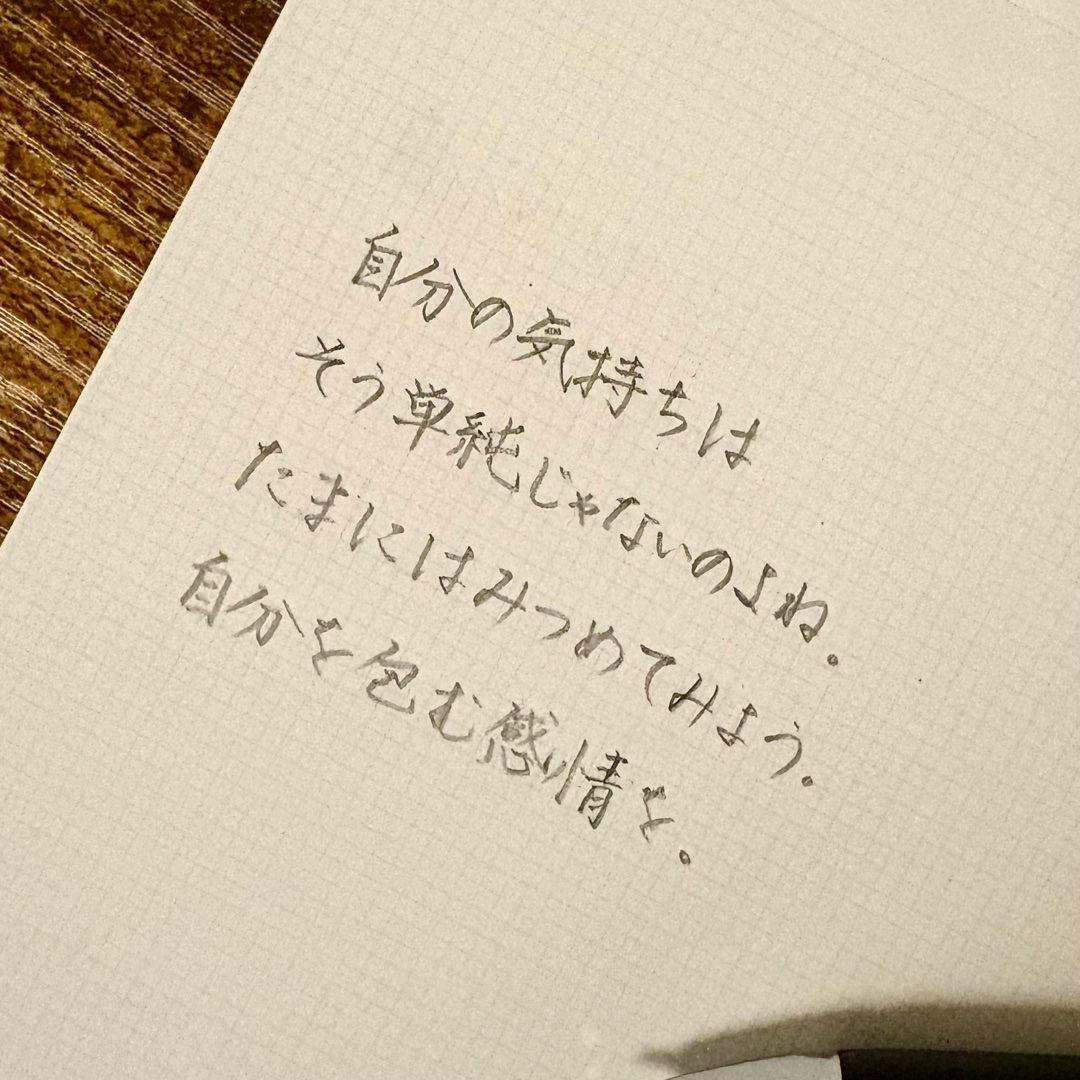 自分の気持ちは
そう単純じゃないのよね。
たまにはみつめてみよう。
自分を包む感情を。